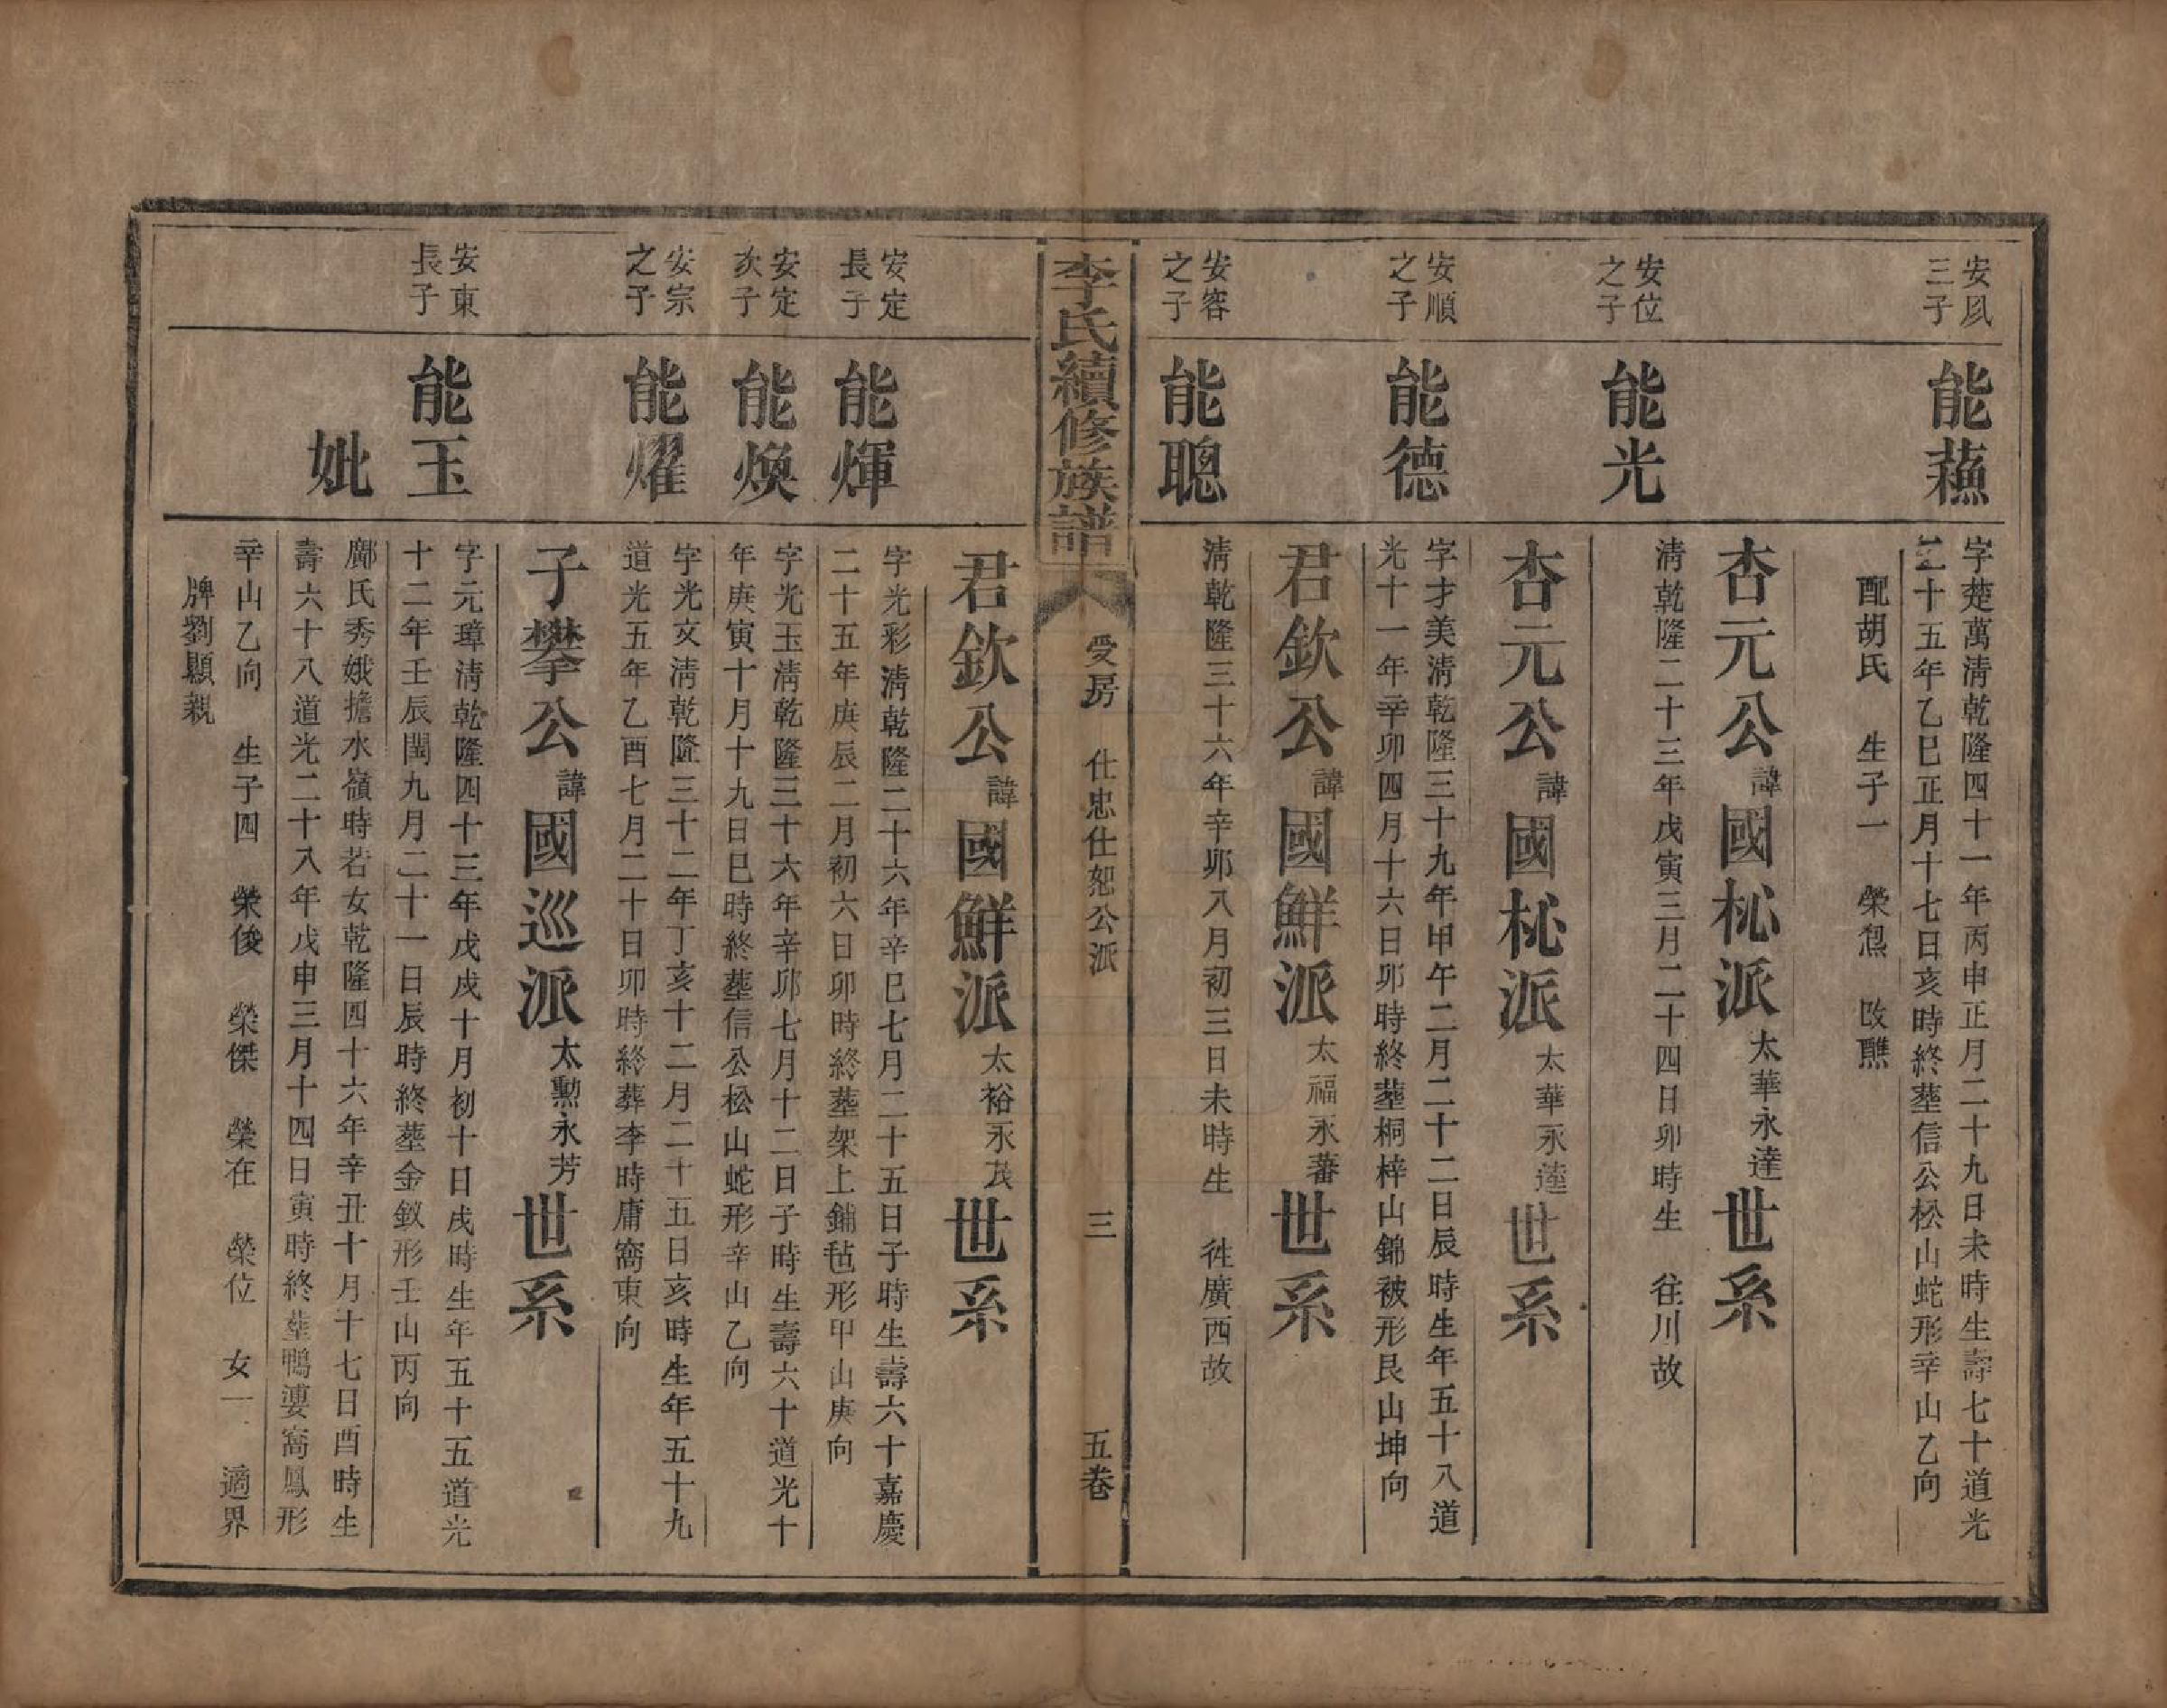 安凨
三子
能蘓
字楚萬清乾隆四十一年丙申正月二十九日未時生壽七十道光
二十五年乙巳正月十七日亥時終塟信公松山蛇形辛山乙向
配胡氏 生子一 榮 改醮
杏元公諱國柲派太華永達世系
安位
之子
能光
清乾隆二十三年戊寅三月二十四日卯時生 往川故
杏元公諱國柲派太華永達世系
安順
之子
能德
字才美清乾隆三十九年甲午二月二十二日辰時生年五十八道
光十一年辛卯四月十六日卯時終塟桐梓山錦被形艮山坤向
君欽公諱國鮮派太福永蕃世系
安容
之子
能聰
清乾隆三十六年辛卯八月初三日未時生 徃廣西故
李氏續修族譜
受房 仕忠仕恕公派
三
五卷
君欽公諱國鮮派太裕永茂世系
安定
長子
能煇
字光彩清乾隆二十六年辛巳七月二十五日子時生壽六十嘉慶
二十五年庚辰二月初六日卯時終塟架上鋪毡形甲山庚向
安定
次子
能煥
字光玉清乾隆三十六年辛卯七月十二日子時生壽六十道光十
年庚寅十月十九日巳時終塟信公松山蛇形辛山乙向
安宗
之子
能燿
字光文清乾隆三十二年丁亥十二月二十五日亥時生年五十九
道光五年乙酉七月二十日卯時終葬李時庸窩東向
子攀公諱國巡派太勲永芳世系
安東
長子
能玉
字元璋清乾隆四十三年戊戌十月初十日戌時生年五十五道光
十二年壬辰閏九月二十一日辰時終塟金釵形壬山丙向
妣
鄺氏秀娥擔水嶺時若女乾隆四十六年辛丑十月十七日酉時生
壽六十八道光二十八年戊申三月十四日寅時終塟鴨婆窩鳳形
辛山乙向 生子四 榮俊 榮傑 榮在 榮位 女一 適界
牌劉顯親